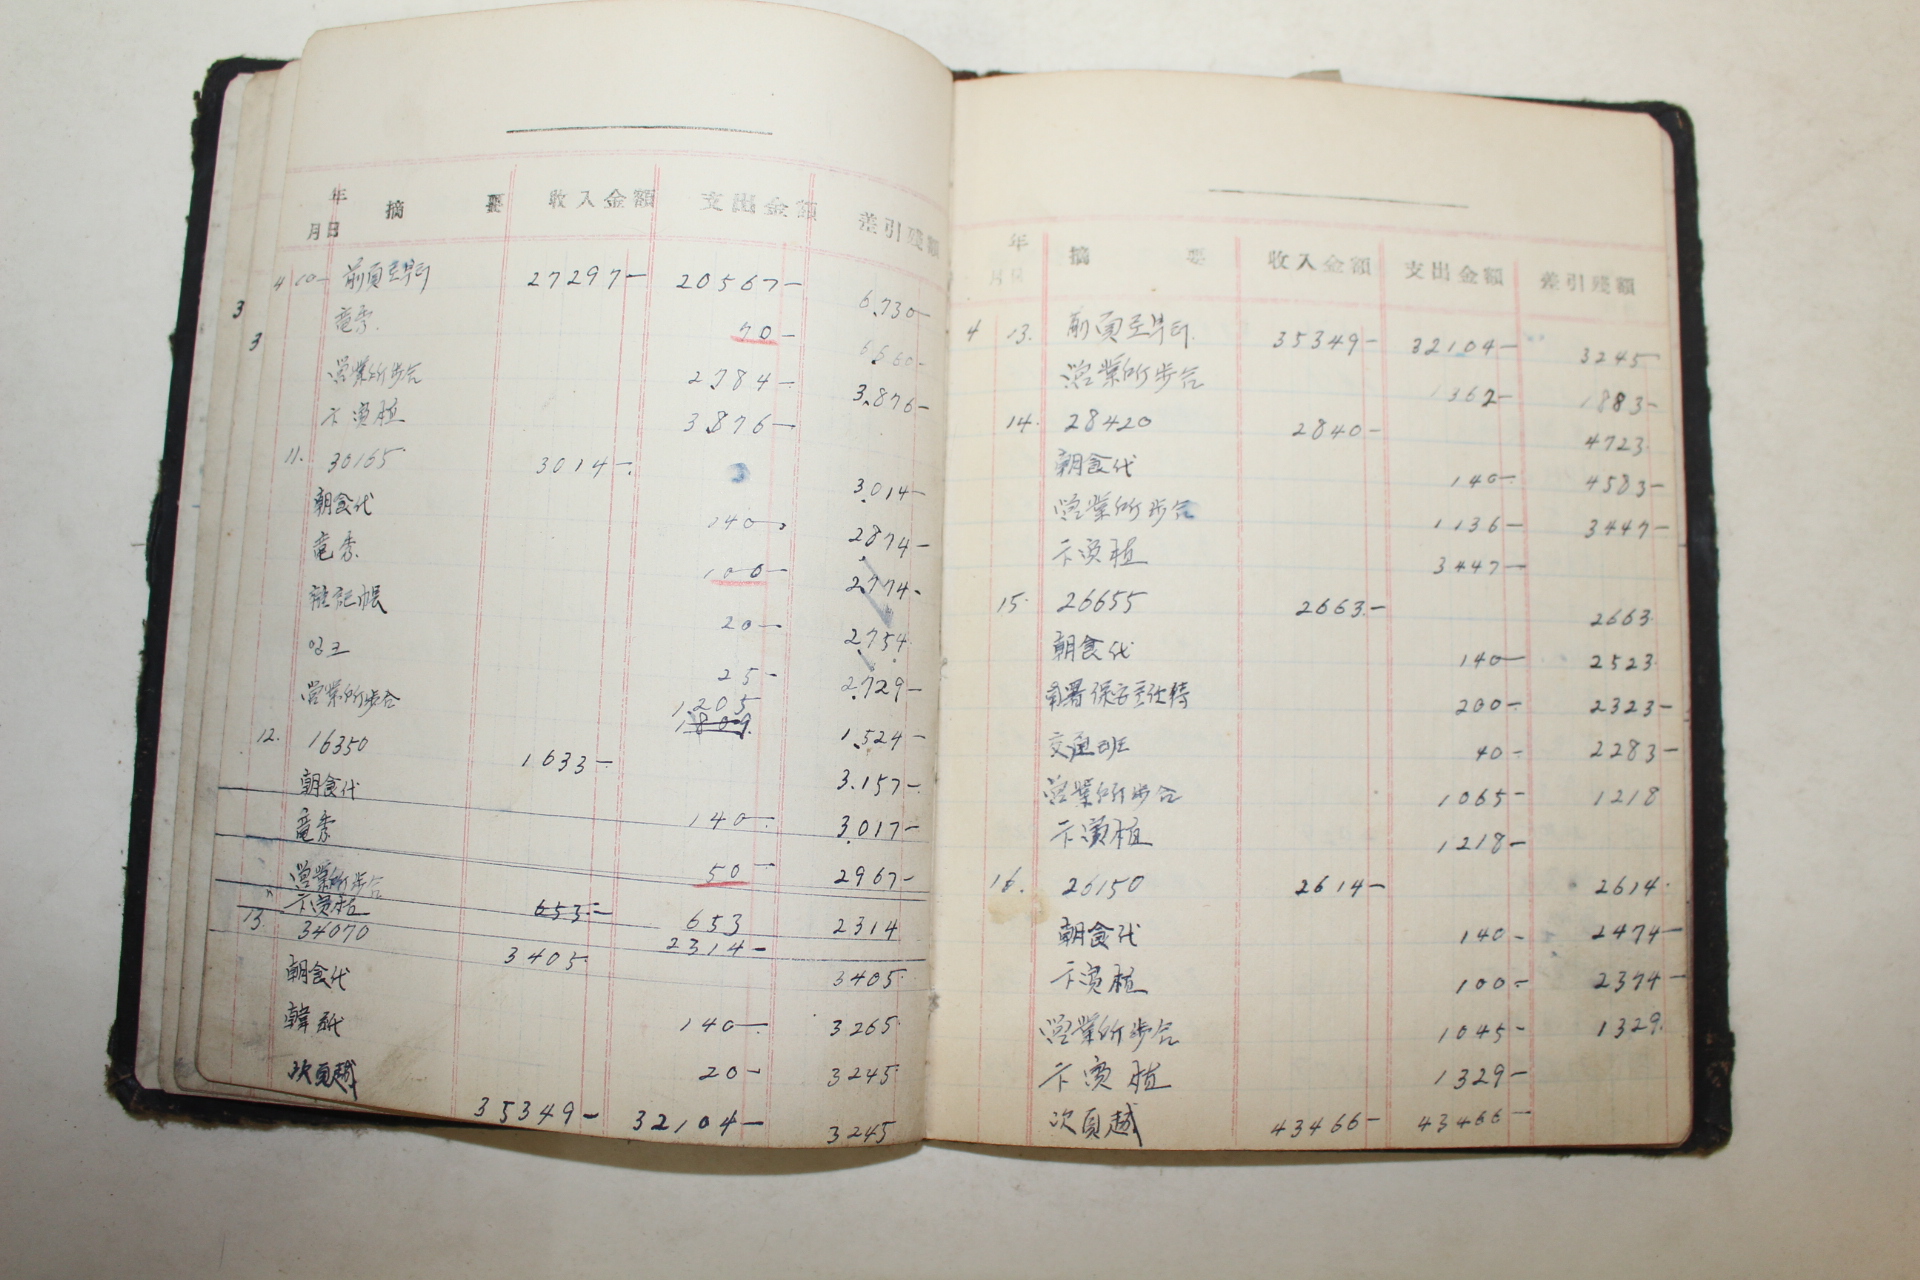 年 月日 摘要 收入金額 支出金額 差引殘額
4 10 前頁로부터 27297- 20567- 6,730-
3 竜秀 70- 6660-
3 営業所歩合 2,784- 3,876-
卞演植 3,876-
11. 30165 3014- 3,014-
朝食代 140- 2874-
竜秀 100- 2,774-
雜記帳 20- 2,754
잉크 25- 2,729-
営業所歩合 1,205 1809 1,524-
12. 16350 1633- 3,157-
朝食代 140- 3,017-
竜秀 50- 2967-
営業所歩合 653- 653 2314
〃 卞演植 2314-
13. 34070 3405 3405
朝食代 140- 3265
韓紙 20- 3245
次頁越 35349- 32104- 3245
年 月日 摘要 收入金額 支出金額 差引殘額
4 13. 前頁로부터 35349- 32104- 3245-
営業所歩合 1362- 1883-
14. 28420 2840- 4723
朝食代 140- 4583-
営業所歩合 1136- 3447-
卞演植 3447-
15. 26655 2663- 2663
朝食代 140- 2523
南署保安主任待 200- 2323-
交通班 40- 2283-
営業所歩合 1065- 1218
卞演植 1218-
16. 26150 2614- 2614
朝食代 140- 2474-
卞演植 100- 2374-
営業所歩合 1045- 1329
卞演植 1329-
次頁越 43466- 43466-